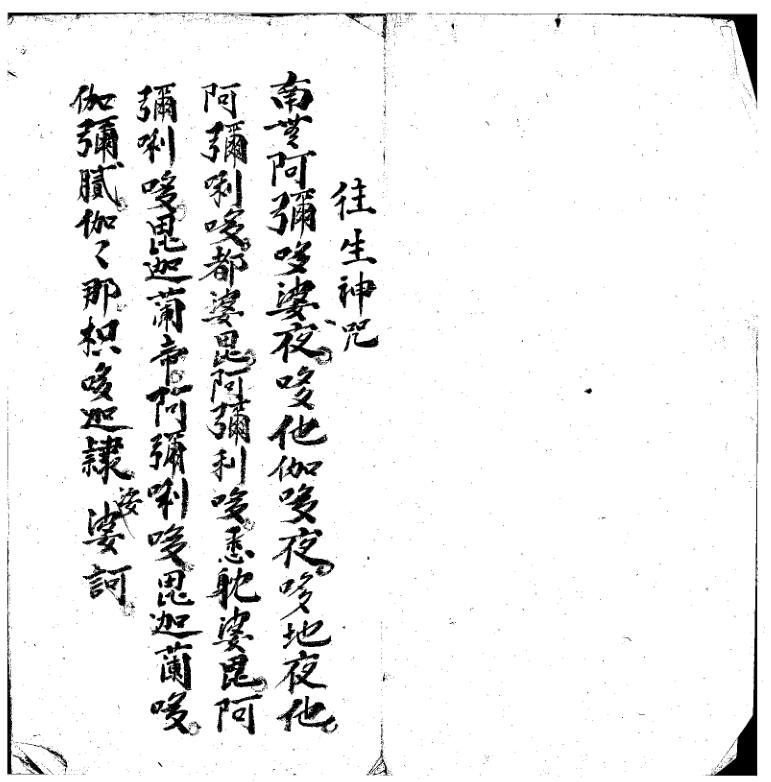 往生神咒
南無阿彌哆婆夜哆他伽哆夜哆地夜他
阿彌唎哆都婆毘阿彌利哆悉躭婆毘阿
彌唎哆毘迦蘭帝阿彌唎哆毘迦蘭哆
伽彌膩伽〻那枳哆迦隸娑婆訶